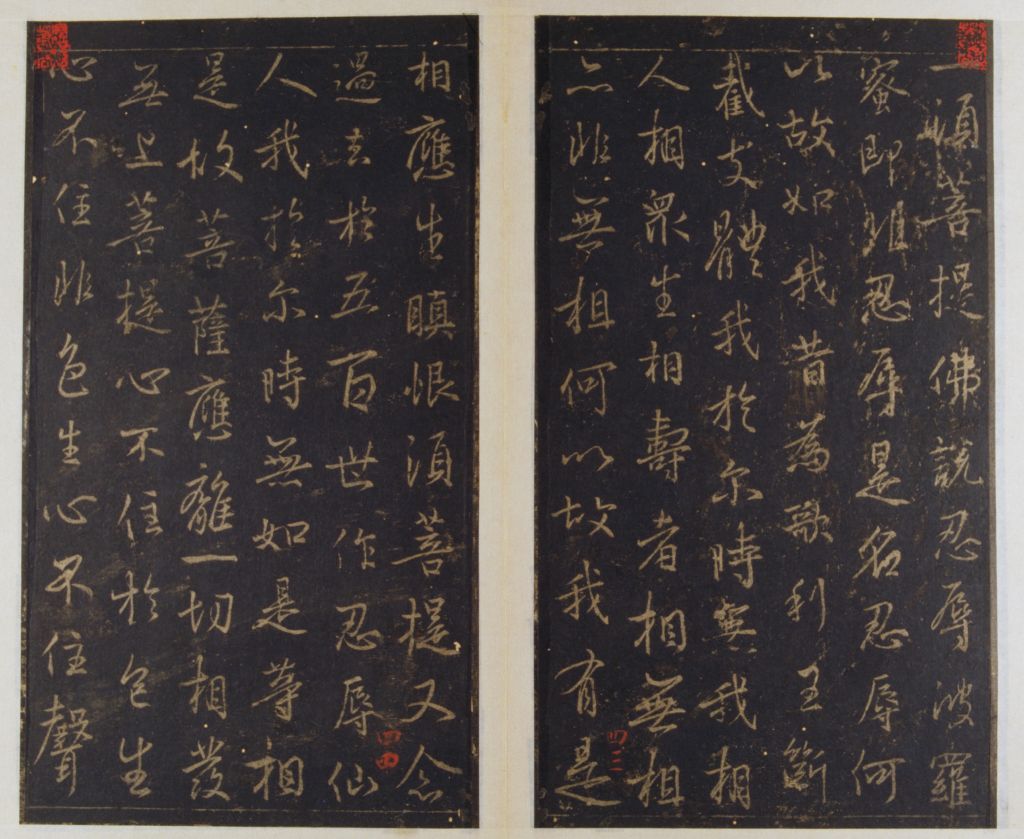 一須菩提佛說忍辱波羅
蜜即非忍辱是名忍辱何
以故如我昔為歌利王斷
截支體我於尔時無我相
人相眾生相壽者相無相
亦非無相何以故我有是
相應生瞋恨須菩提又念
過去於五百世作忍辱仙
人我於尔時無如是等相
是故菩薩應離一切相發
無上菩提心不住於色生
心不住非色生心不住聲
四四